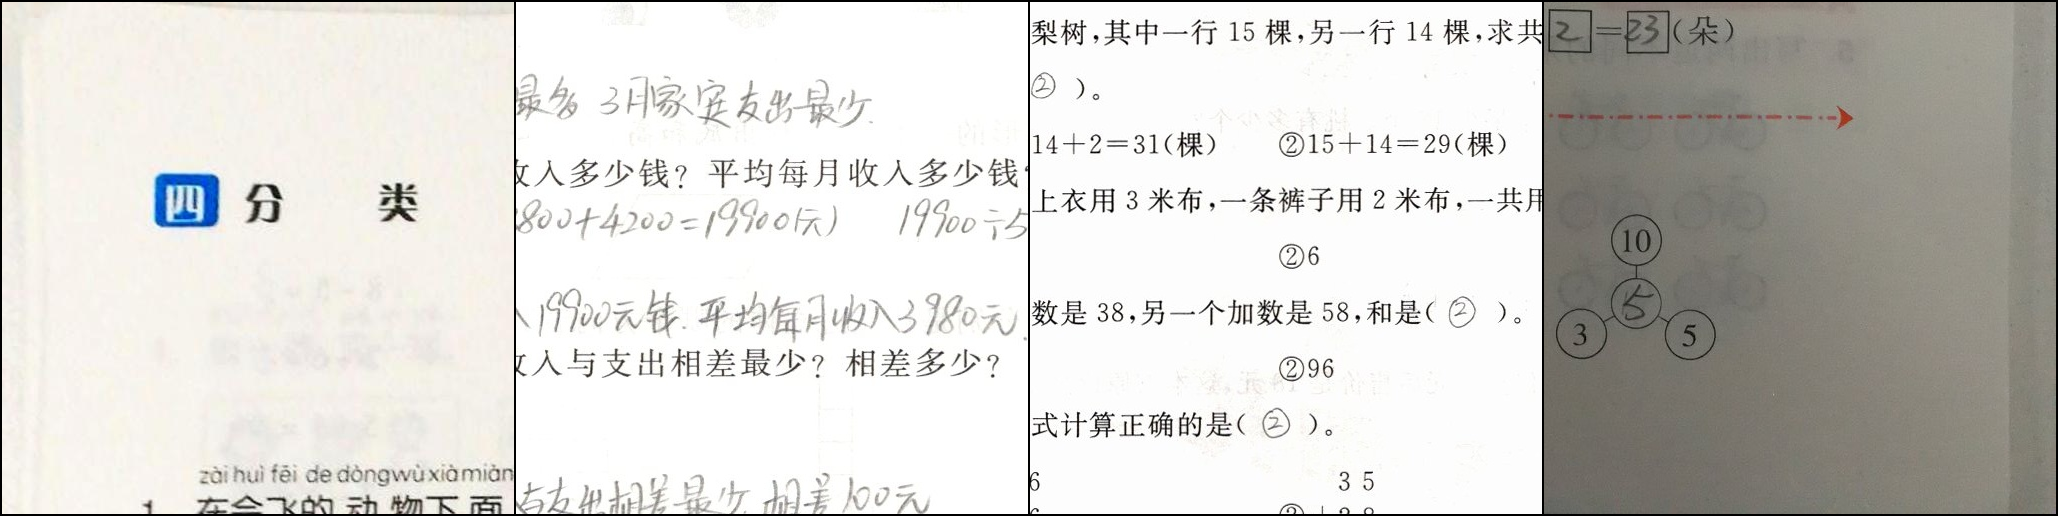 四 分 类
zài huì fēi de dòng wù xià miàn
1. 在会飞的动物下面
最多 3月家庭支出最少.
收入多少钱？平均每月收入多少钱
800+4200=19900(元) 19900÷5
19900元钱.平均每月收入3980元.
收入与支出相差最少？相差多少？
与支出相差最少,相差100元
梨树,其中一行 15 棵,另一行 14 棵,求共
② )。
14+2=31(棵) ②15+14=29(棵)
上衣用 3 米布,一条裤子用 2 米布,一共用
②6
数是 38,另一个加数是 58,和是( ② )。
②96
式计算正确的是( ② )。
6 3 5
2=23(朵)
10
5
3 5